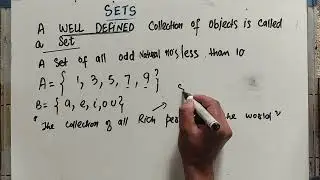 SETS
A WELL DEFINED Collection of Objects is called
a Set
A Set of all odd Natural no's less than 10
A = { 1, 3, 5, 7, 9 }
B = { a, e, i, o u }
" The collection of all Rich pe the world "